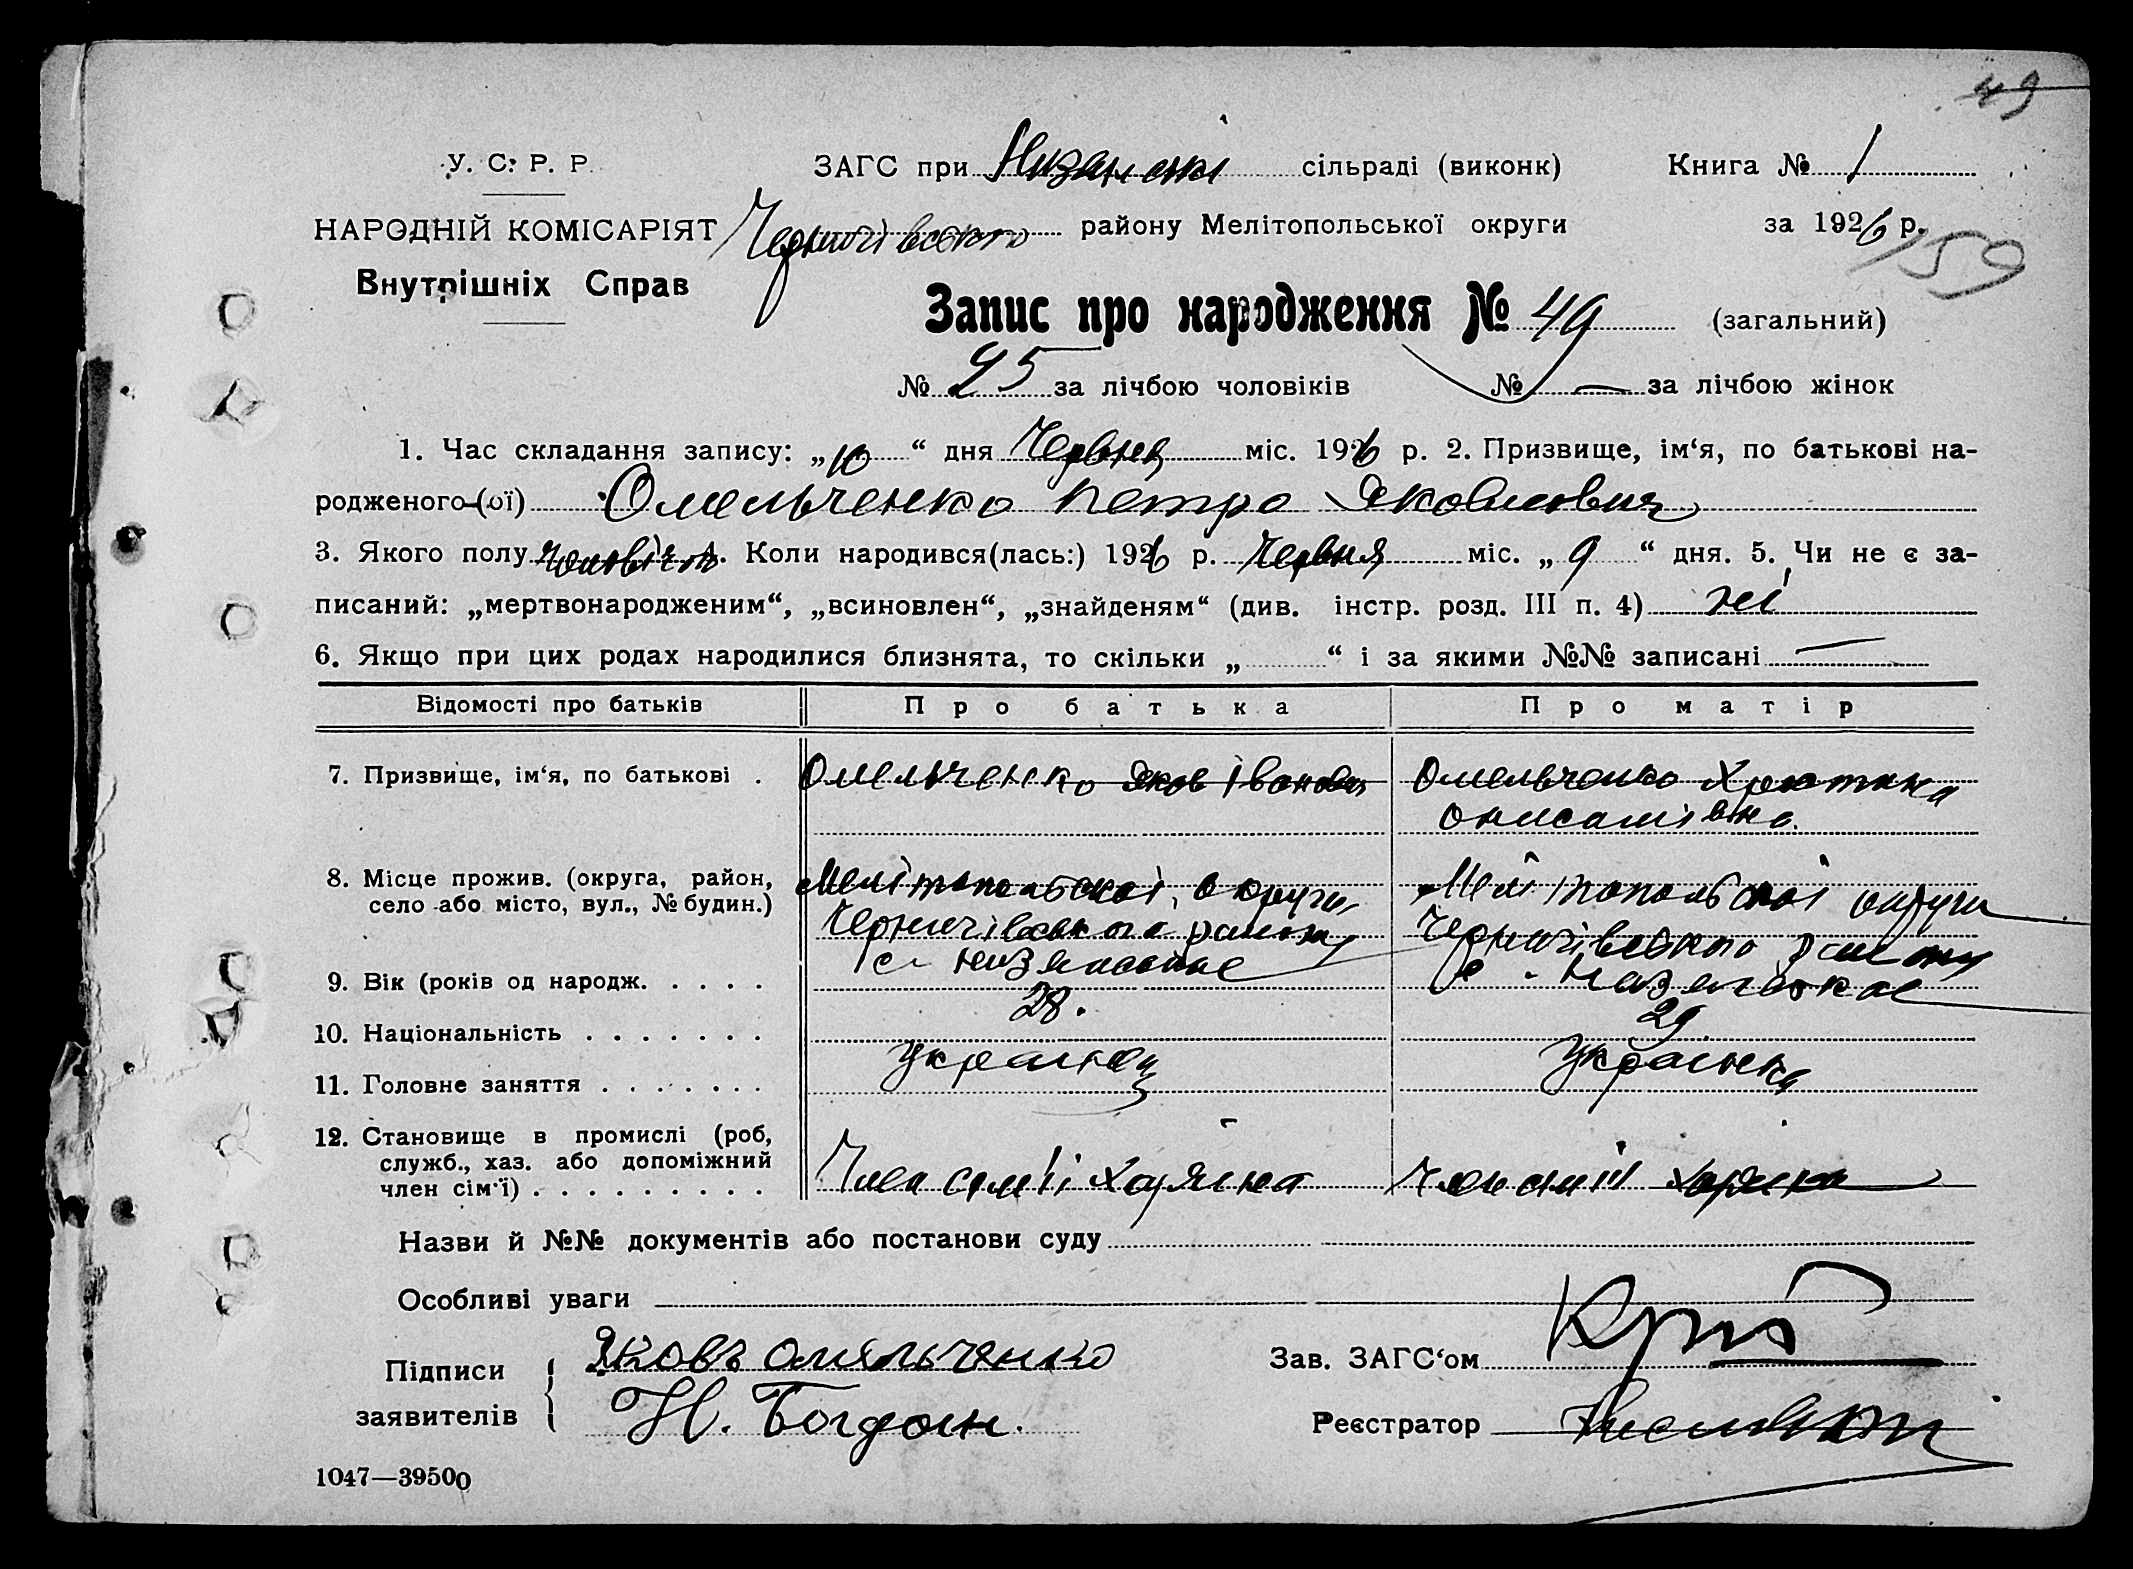 49
У. С. Р. Р.
ЗАГС при Низянскі сільраді (виконк) Книга № 1
НАРОДНІЙ КОМІСАРІЯТ Чернигівського району Мелітопольської округи за 1926 р.
159
Внутрішніх Справ
Запис про народження № 49 (загальний)
№ 25 за лічбою чоловіків № — за лічбою жінок
1. Час складання запису: „10“ дня Червня міс. 1926 р. 2. Призвище, ім‘я, по батькові на-
родженого-(ої) Омельченко Петро Яковлович
3. Якого полу чоловіч. 4. Коли народився(лась:) 1926 р. Червня міс. „9“ дня. 5. Чи не є за-
писаний: „мертвонародженим“, „всиновлен“, „знайденям“ (див. інстр. розд. III п. 4) ні
6. Якщо при цих родах народилися близнята, то скільки „ “ і за якими №№ записані —
Відомості про батьків Про батька Про матір
7. Призвище, ім‘я, по батькові . Омельченко Яков Іванович Омельченко Христина
Онисимівна.
8. Місце прожив. (округа, район, село або місто, вул., № будин.) Мелітопольскої округи Мелітопольскої округи
Чернигівського району Чернигівського району
с.
9. Вік (років од народж. . . . . 28. 29.
10. Національність . . . . . . . українец українка
11. Головне заняття . . . . . . .
12. Становище в промислі (роб, служб., хаз. або допоміжний член сім‘ї) . . . . . . . . . Член сем'ії хазяїна Член сімії хазяїна
Назви й №№ документів або постанови суду
Особливі уваги
Підписи заявителів Яковъ Омяльченко Зав. ЗАГС‘ом
Н. Богдан. Реєстратор
1047—39500